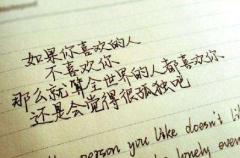 如果你喜欢的人
不喜欢你
那么就算全世界的人都喜欢你
还是会觉得很孤独吧
person you like doesn't li
lonely even